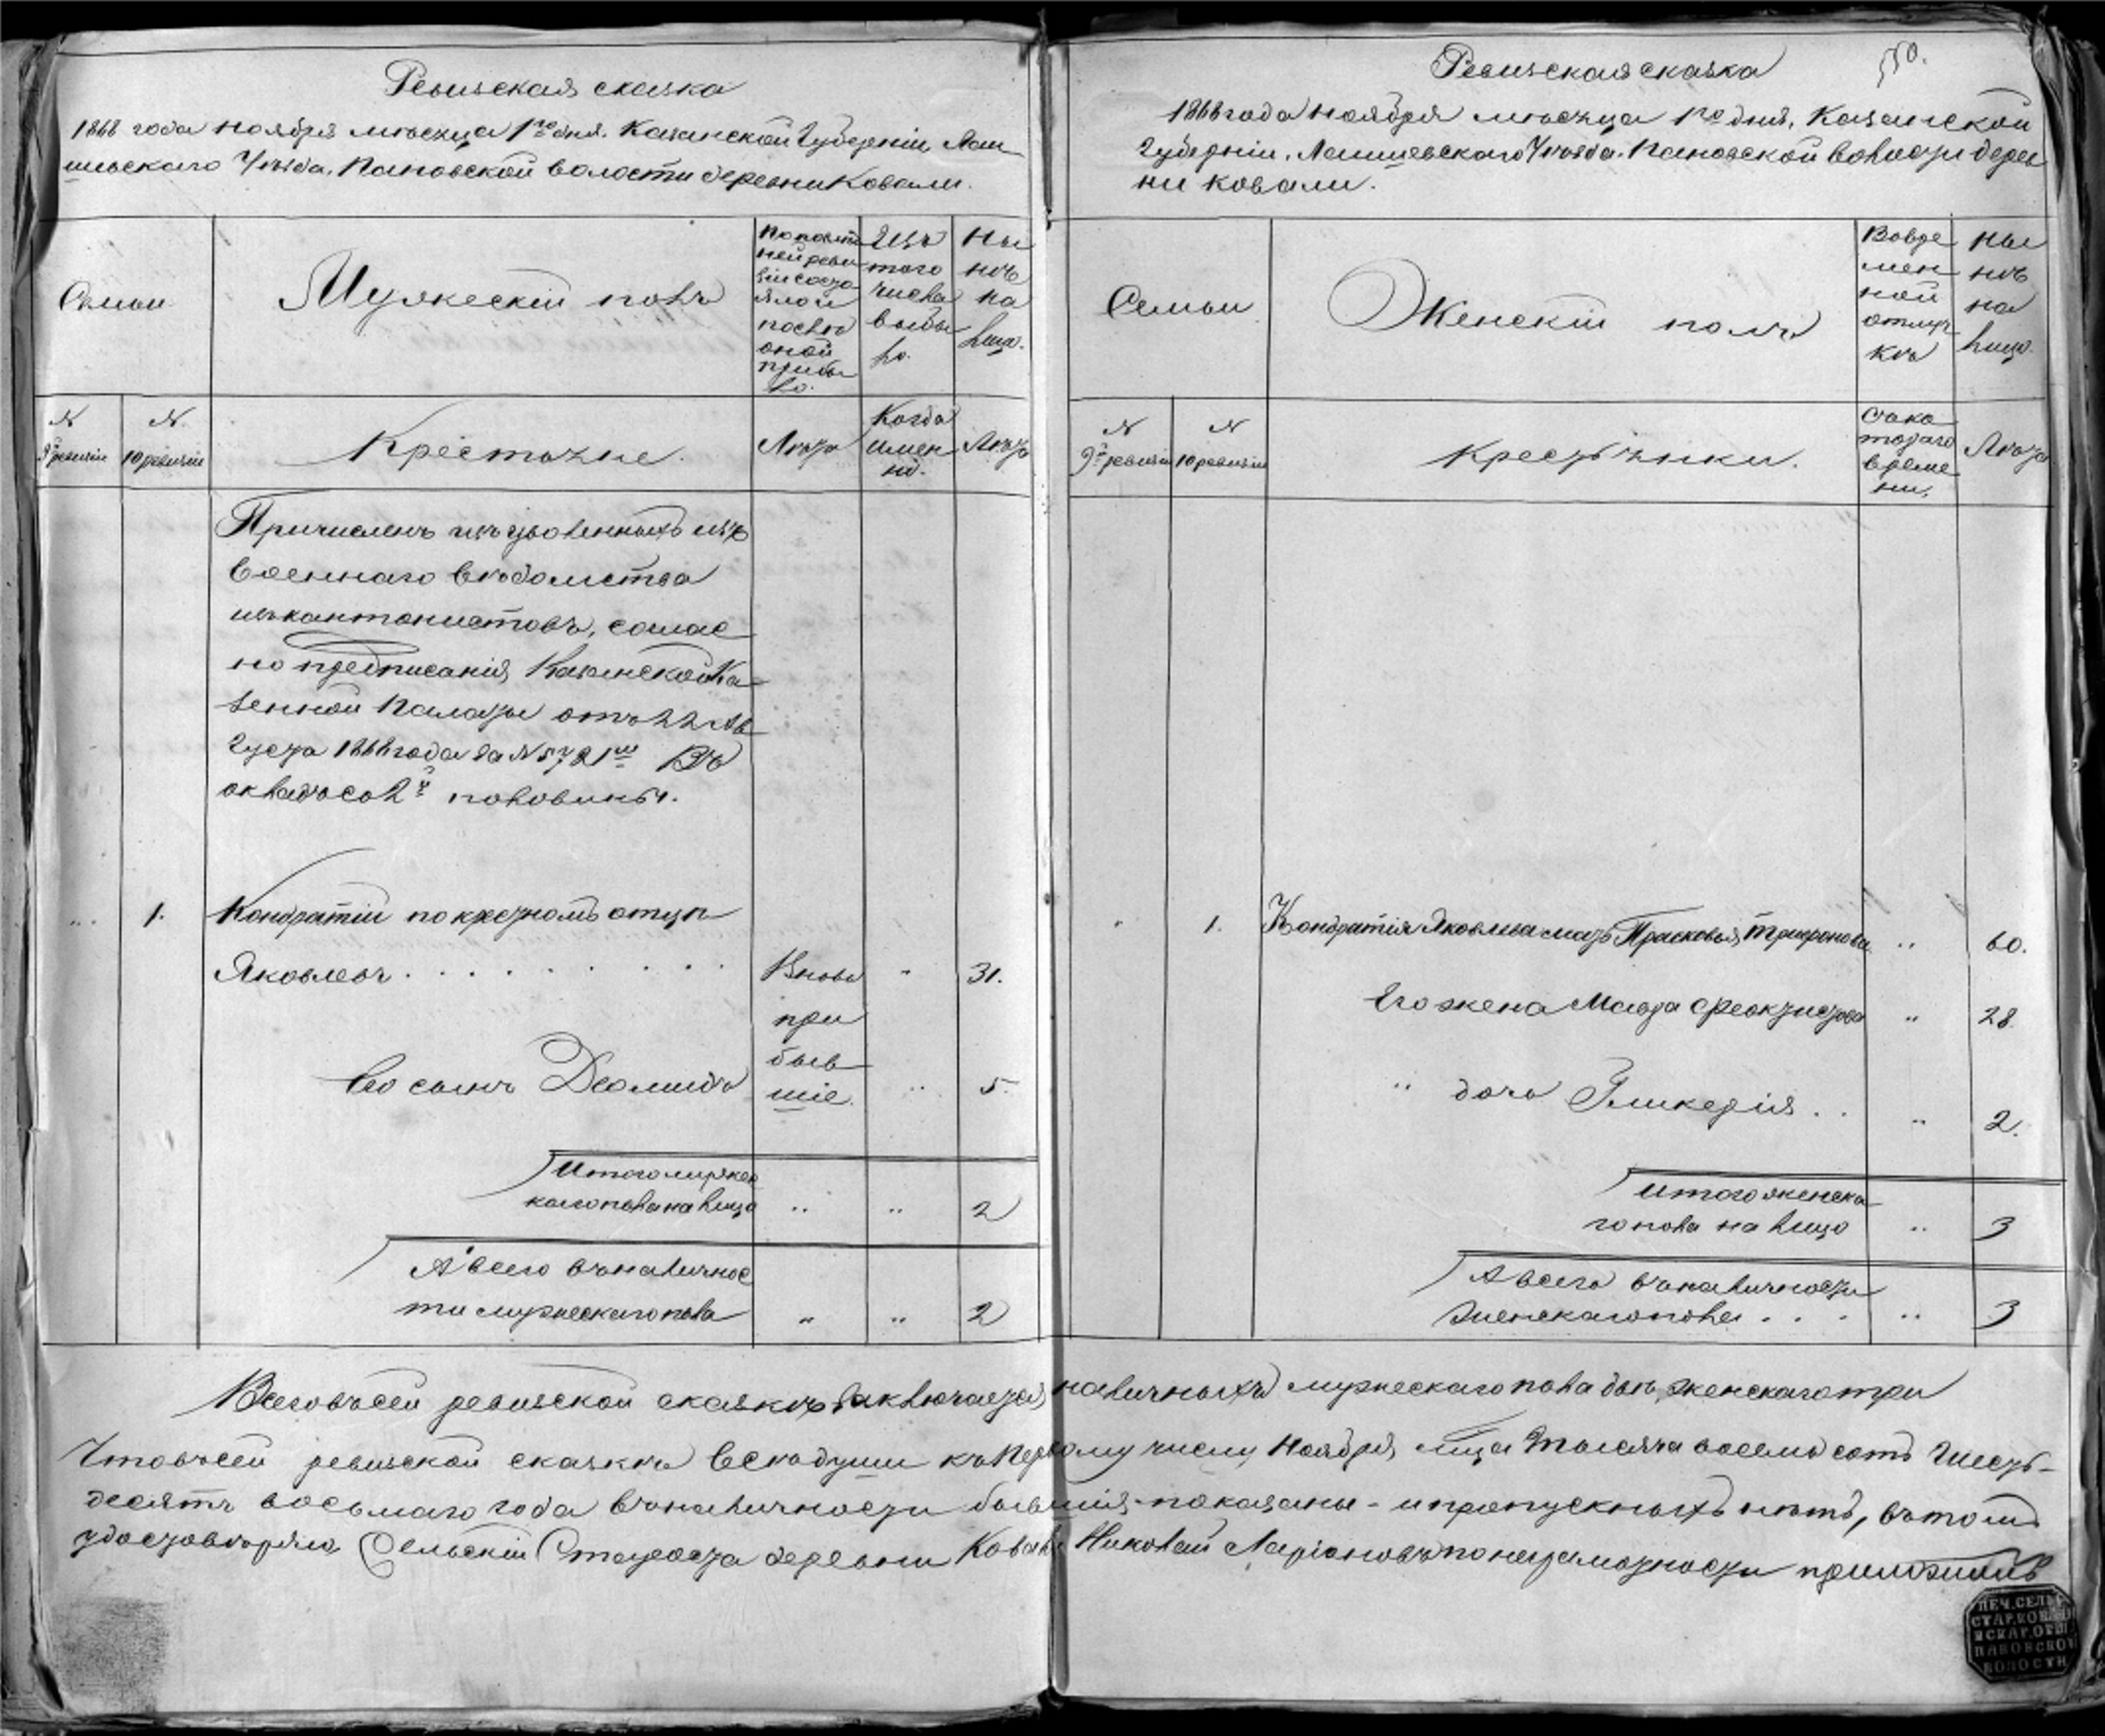 Ревизская сказка
1868 года Ноября мѣсяца 1го дня. Казанской Губерніи Лаи
шевскаго Уѣзда. Пановской волости деревни Ковали.
Семьи
Мужескій полъ
По послѣд
ней реви
зіи состо
яло и
послѣ
оной
прибы
ло.
Изъ
того
числа
выбы
ло.
Ны
нѣ
на
лицо.
N
9й ревизіи
N.
10 ревизіи
Крестьяне.
Лѣта
Когда
имен
но.
Лѣта
Причисленъ изъ уволенныхъ изъ
Военнаго вѣдомства
изъ кантонистовъ, соглас
но предписанія Казанской Ка
зенной Палаты отъ 22 Ав
густа 1868 года за N 5781м Въ
окладъ со 2й половины.
1. Кондратій по крестномъ отцѣ
Яковлевъ . . . . . . . . . Вновь " 31.
при
быв
шіе.
Его сынъ Деомидъ " 5.
Итого мужес
каго пола на лицо " " 2
А всего въ наличнос
ти мужескаго пола " " 2
Ревизская сказка
550.
1868 года Ноября мѣсяца 1го дня, Казанской
Губерніи, Лаишевскаго Уѣзда. Пановской волости дерев
ни Ковали.
Семьи
Женскій полъ
Во вре
мен
ной
отлуч
кѣ
Ны
нѣ
на
лицо.
N
9й ревизіи
N
10 ревизіи
Крестьянки.
Съ ко
тораго
време
ни.
Лѣта
" 1. Кондратія Яковлева мать Прасковья Трифонова " 60.
Его жена Мавра Феоктистова " 28.
" дочь Гликерія . . " 2.
Итого женска
го пола на лицо " 3
А всего въ наличности
Женскаго пола . . . " 3
Всего въ сей ревизской сказкѣ заключается наличныхъ мужескаго пола два, женскаго три
Что въ сей ревизской сказкѣ всѣ души къ Первому числу Ноября м̃ца Тысяча восемь сотъ Шесть-
десятъ восьмаго года въ наличности бывшія показаны - и пропускныхъ нѣтъ, въ томъ
удостовѣряю, Сельскій Староста деревни Ковали Николай Ларіоновъ по неграмотности приложилъ
ПЕЧ. СЕЛЬС
СТАР. КОВАЛ
ИСКАГ. ОБЩ
ПАНОВСКОЙ
ВОЛОСТИ